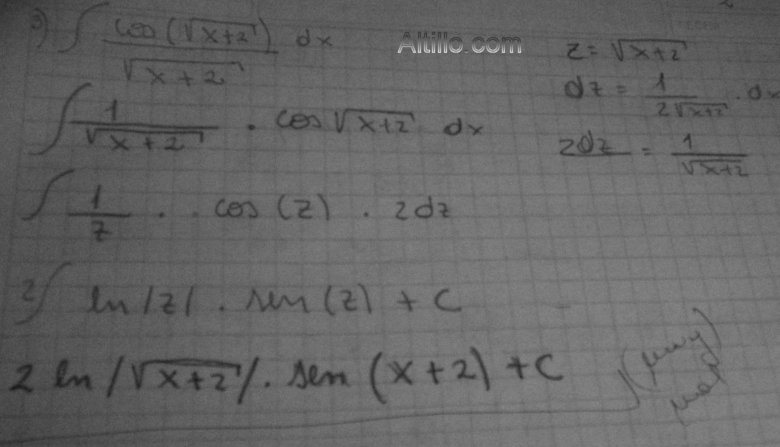 3) ∫ cos(√x+2) / √x+2 dx
Altillo.com
z = √x+2
dz = 1 / 2√x+2 . dx
∫ 1 / √x+2 . cos √x+2 dx
2dz = 1 / √x+2
∫ 1 / z . . cos (z) . 2dz
2∫ ln |z| . sen (z) + C
2 ln |√x+2| . sen (x+2) + C
(muy mal)